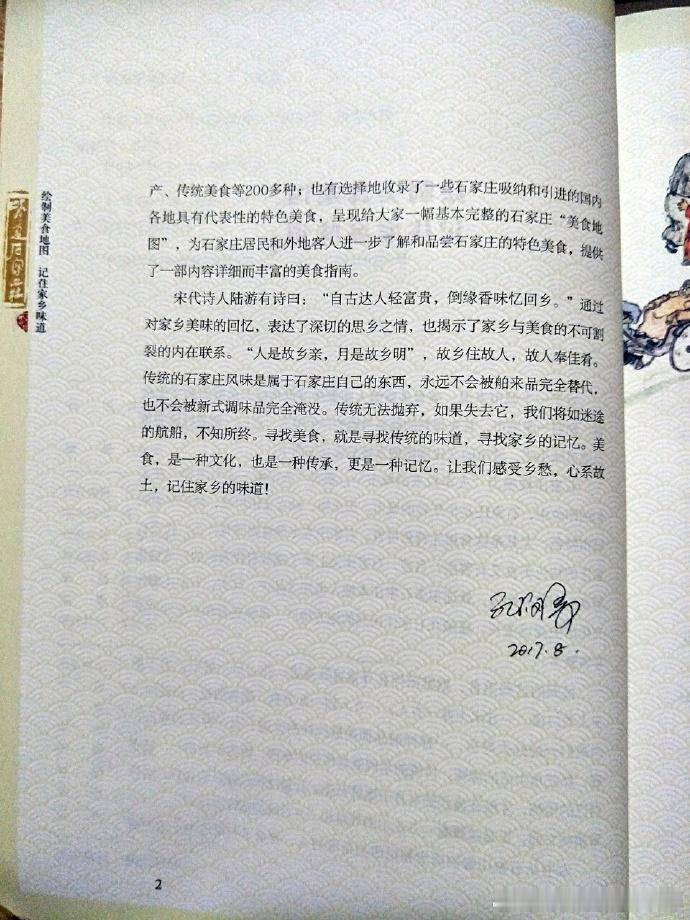 产、传统美食等200多种；也有选择地收录了一些石家庄吸纳和引进的国内
各地具有代表性的特色美食，呈现给大家一幅基本完整的石家庄“美食地
图”，为石家庄居民和外地客人进一步了解和品尝石家庄的特色美食，提供
了一部内容详细而丰富的美食指南。
宋代诗人陆游有诗曰：“自古达人轻富贵，倒缘香味忆回乡。”通过
对家乡美味的回忆，表达了深切的思乡之情，也揭示了家乡与美食的不可割
裂的内在联系。“人是故乡亲，月是故乡明”，故乡住故人，故人奉佳肴。
传统的石家庄风味是属于石家庄自己的东西，永远不会被舶来品完全替代，
也不会被新式调味品完全淹没。传统无法抛弃，如果失去它，我们将如迷途
的航船，不知所终。寻找美食，就是寻找传统的味道，寻找家乡的记忆。美
食，是一种文化，也是一种传承，更是一种记忆。让我们感受乡愁，心系故
土，记住家乡的味道！
2017.8.
绘制美食地图 记住家乡味道
2